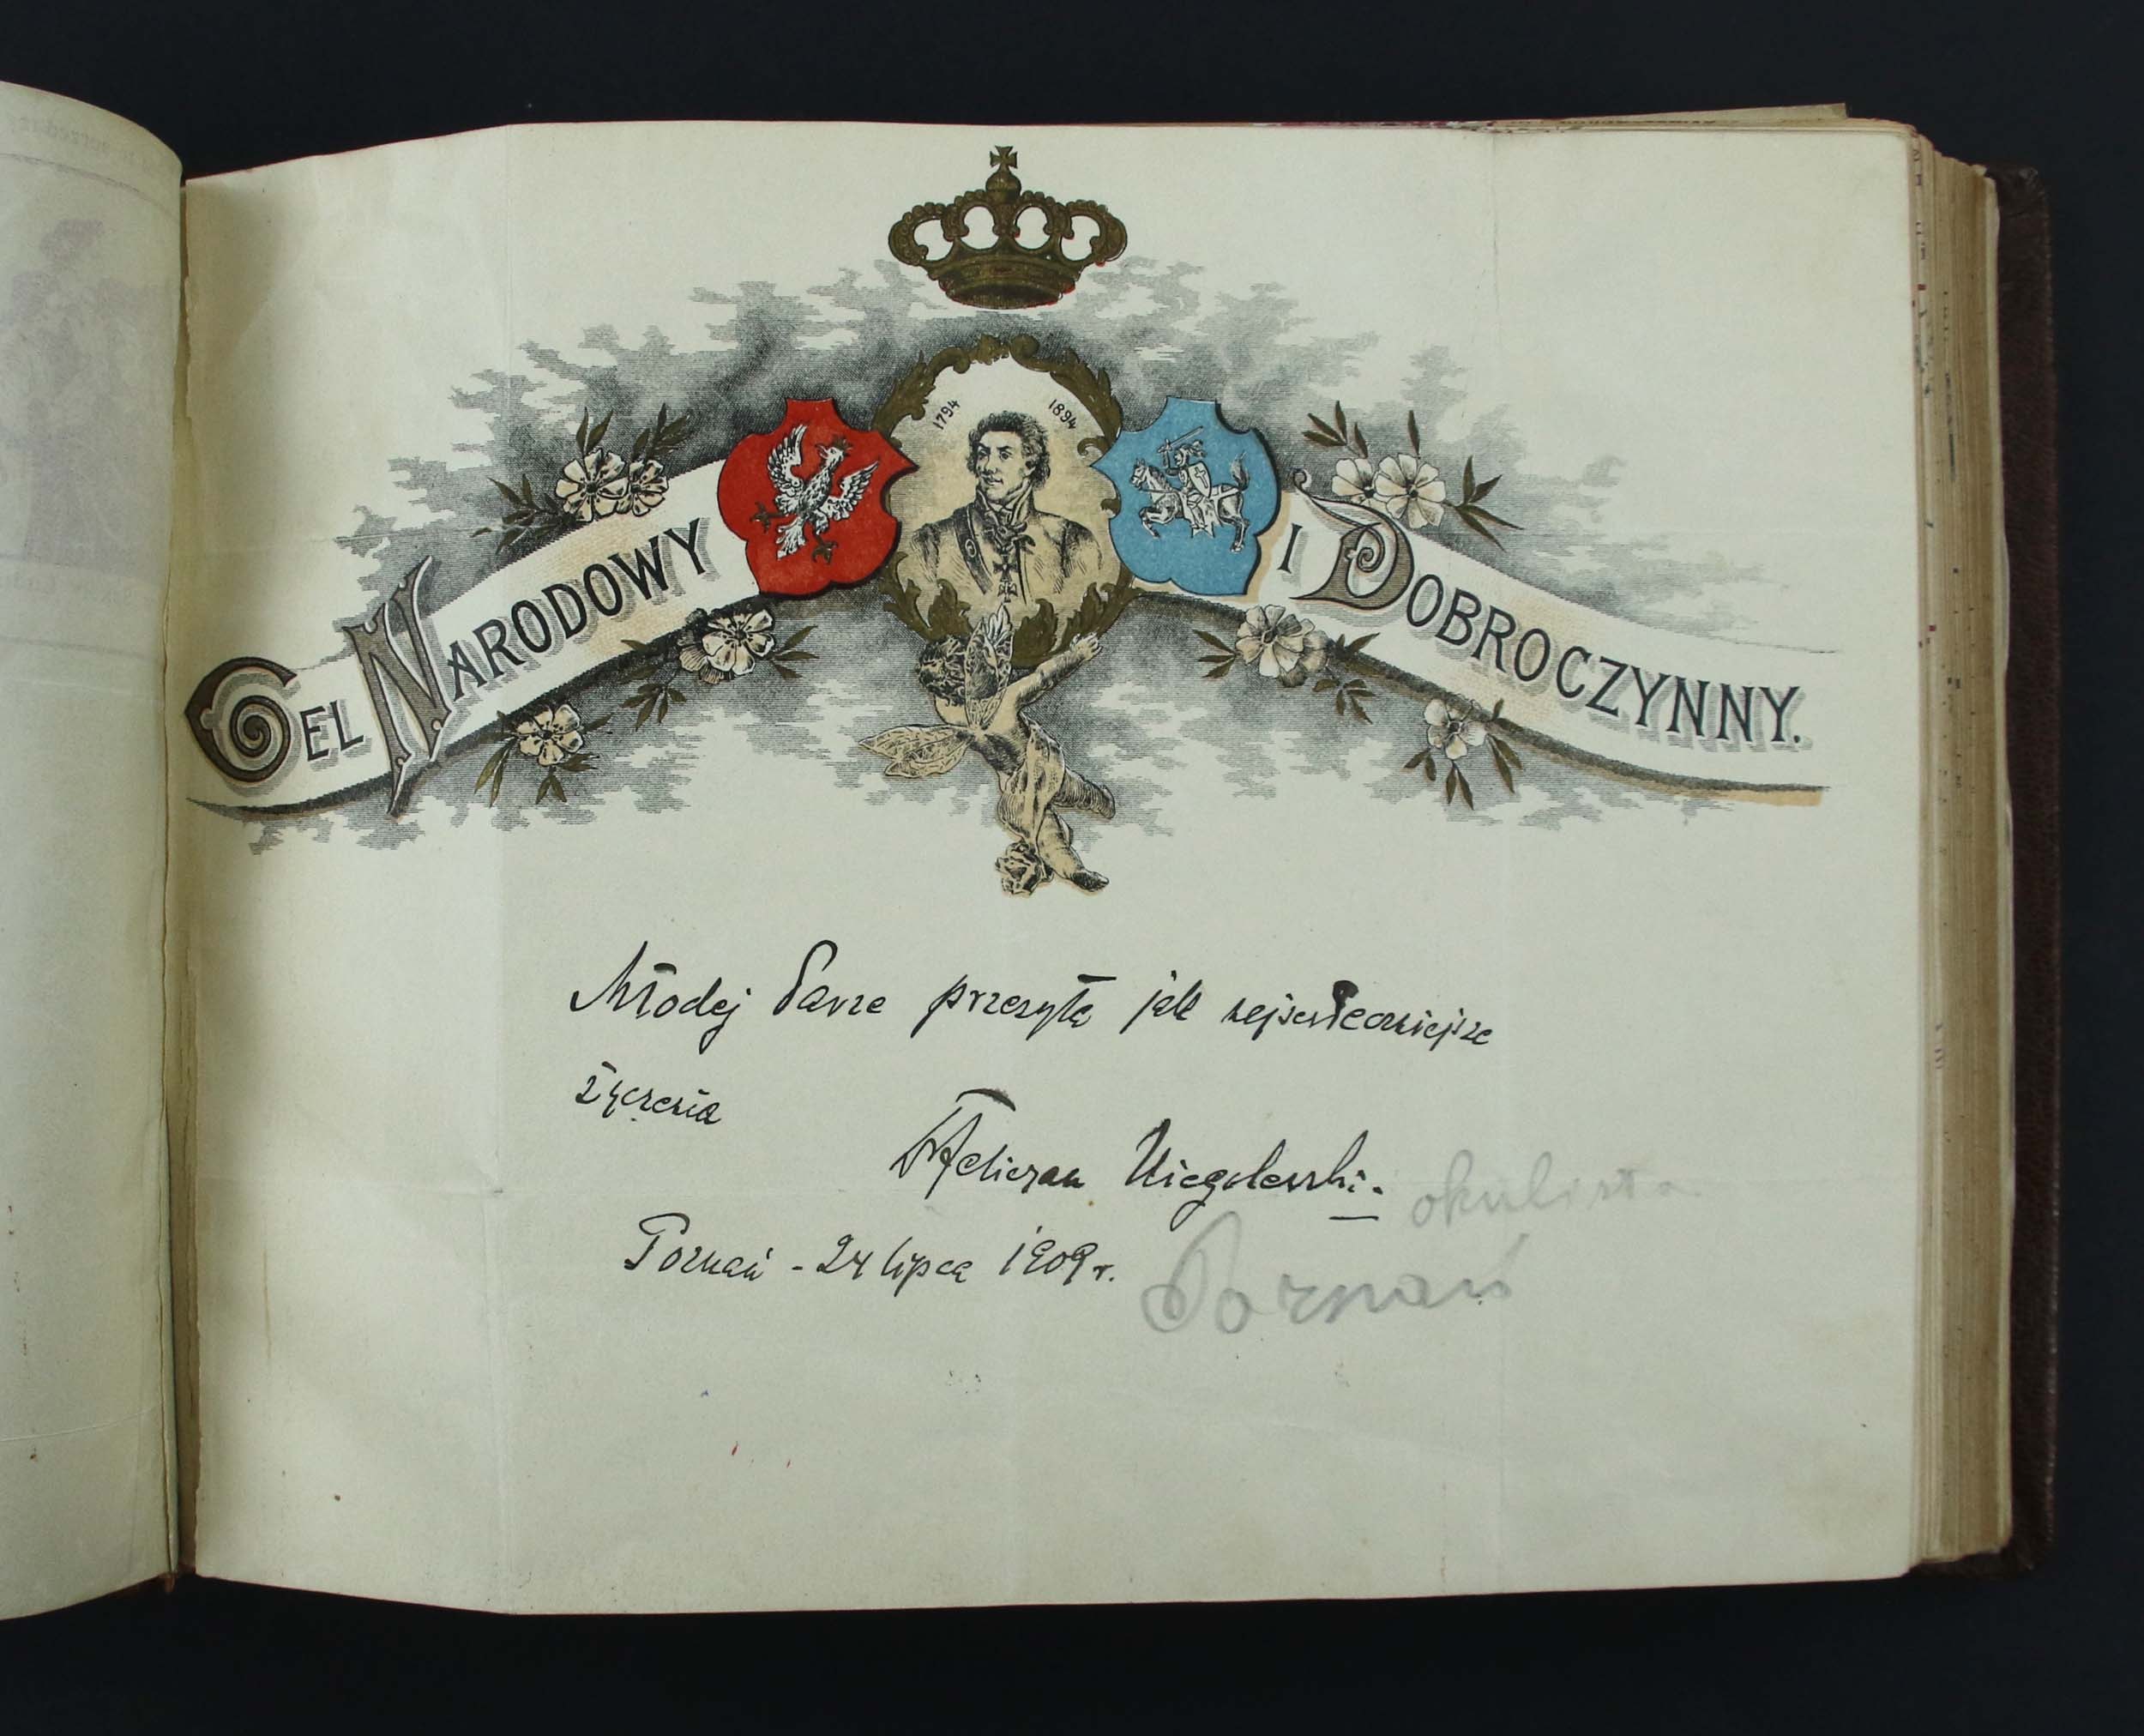 1794 1894
CEL NARODOWY I DOBROCZYNNY.
Młodej Parze przesyła jak najserdeczniejsze
życzenia
Dr Felicyan Niegolewski.
okulista
Poznań - 24 lipca 1909 r.
Poznań